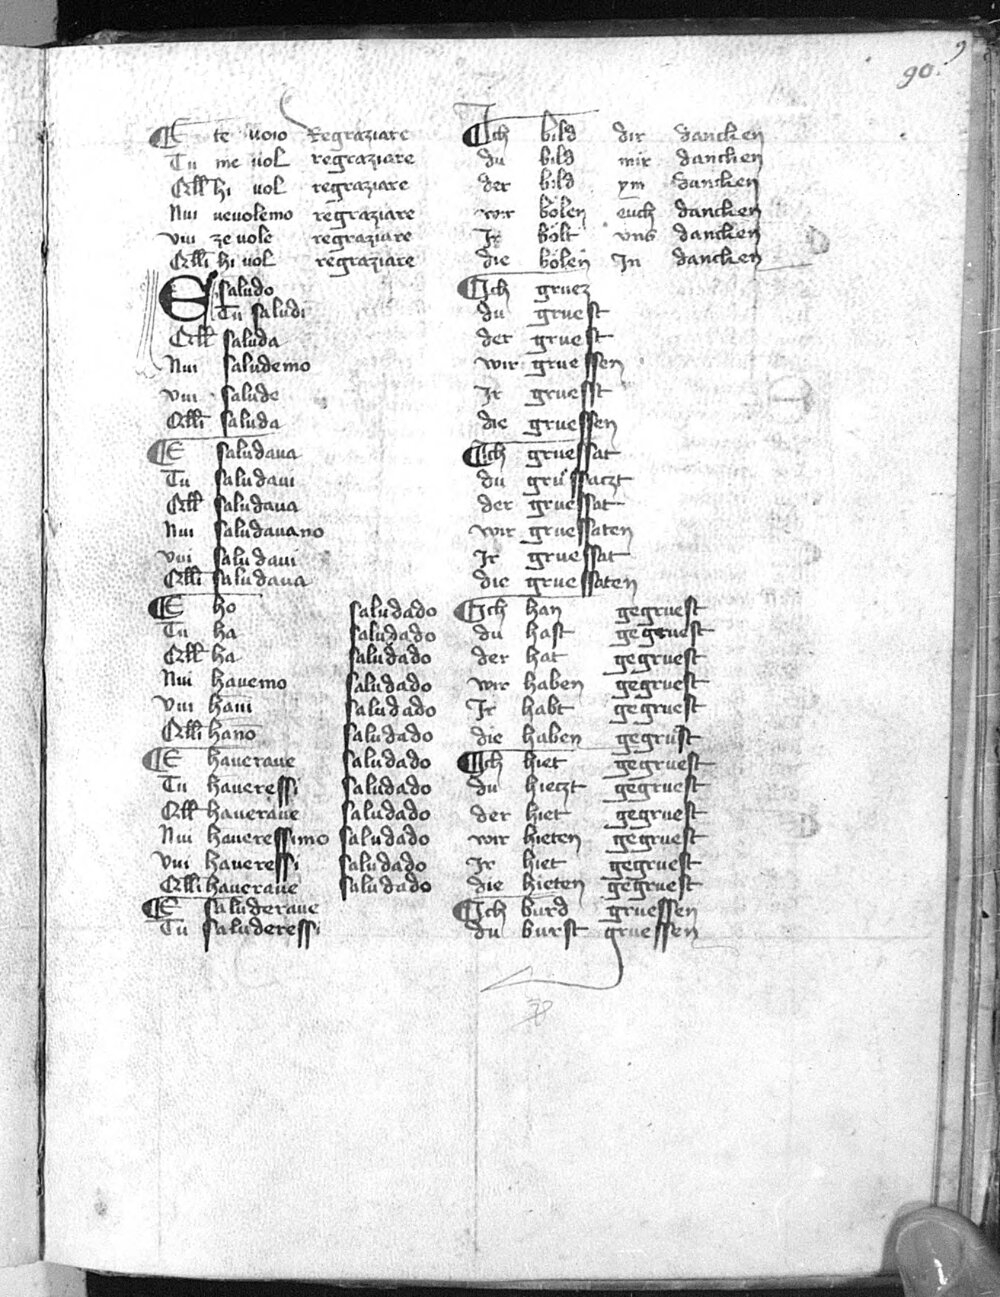 90.
E te uoio Regraziare Ich bild dir dancken
Tu me uol regraziare du bild mir dancken
Elli hi uol regraziare der bild ym dancken
Nui ueuolemo regraziare wir bölen euch dancken
Vui ze uole regraziare Ir bölt vns dancken
Elli hi uol regraziare die bölen In dancken
E saludo Ich gruez
Tu saludi du gruest
Ell saluda der gruest
Nui saludemo wir gruessen
Vui salude Ir gruesst
Elli saluda die gruessen
E saludaua Ich gruessat
Tu saludaui du grussaczt
Ell saludaua der gruessat
Nui saludauano wir gruessaten
Vui saludaui Ir gruessat
Elli saludaua die gruessaten
E ho saludado Ich han gegruest
Tu ha saludado du hast gegruest
Ell ha saludado der hat gegruest
Nui hauemo saludado wir haben gegruest
Vui haui saludado Ir habt gegruest
Elli hano saludado die haben gegrust
E haueraue saludado Ich hiet gegruest
Tu haueressi saludado du hieczt gegruest
Ell haueraue saludado der hiet gegruest
Nui haueressimo saludado wir hieten gegruest
Vui haueressi saludado Ir hiet gegruest
Elli haueraue saludado die hieten gegruest
E saluderaue Ich burd gruessen
Tu saluderessi du burst gruessen